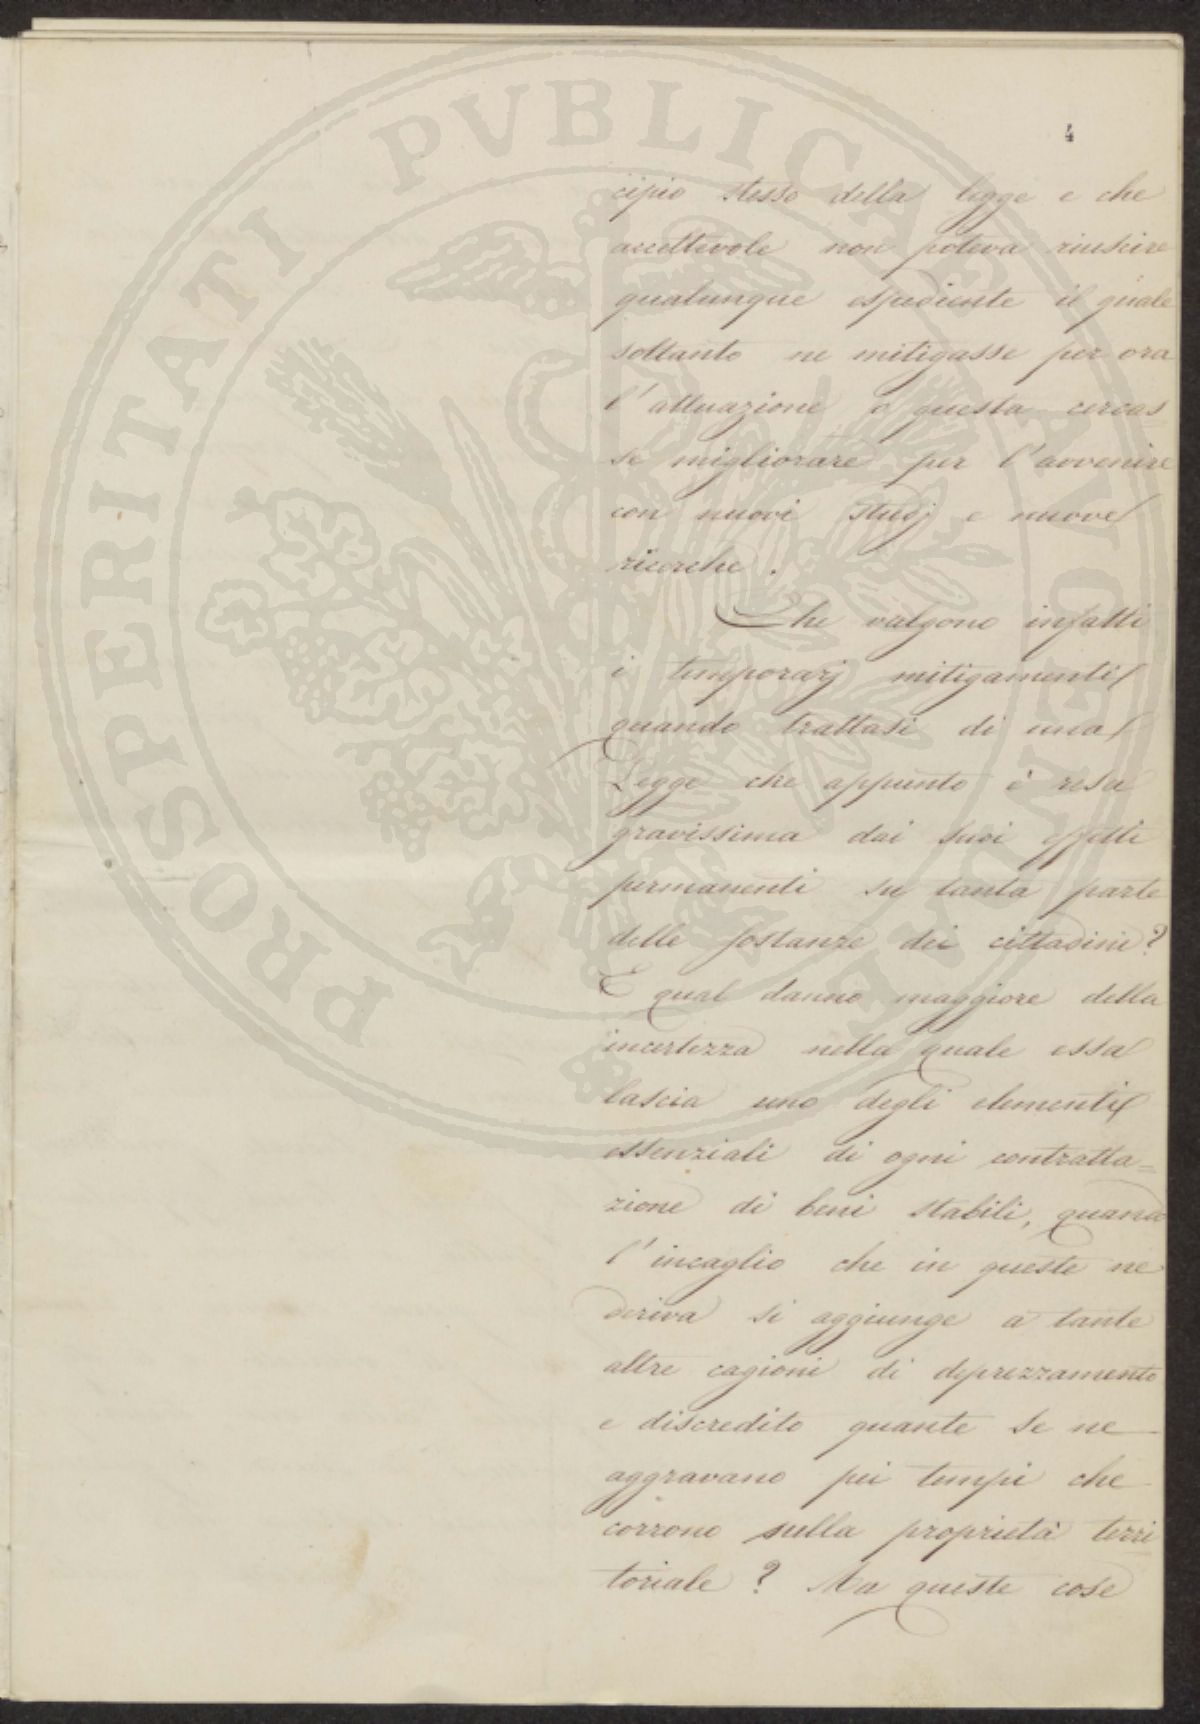 PROSPERITATI PVBLICAE AVGENDAE
4
cipio stesso della legge e che
accettevole non poteva riuscire
qualunque espediente il quale
soltanto ne mitigasse per ora
l'attuazione o questa cercas
se migliorare per l'avvenire
con nuovi studj e nuove
ricerche.
Che valgono infatti
i temporarj mitigamenti
quando trattasi di una
Legge che appunto è resa
gravissima dai suoi effetti
permanenti su tanta parte
delle sostanze dei cittadini?
E qual danno maggiore della
incertezza nella quale essa
lascia uno degli elementi
essenziali di ogni contratta=
zione di beni stabili, quando
l'incaglio che in queste ne
deriva si aggiunge a tante
altre cagioni di deprezzamento
e discredito quante se ne
aggravano pei tempi che
corrono sulla proprietà terri
toriale? Ma queste cose